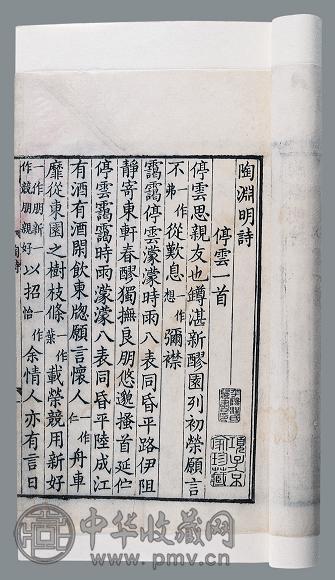 陶淵明詩
停雲一首
停雲思親友也罇湛新醪園列初榮願言
不一作弗從歎息一作想彌襟
靄靄停雲濛濛時雨八表同昏平路伊阻
靜寄東軒春醪獨撫良朋悠邈搔首延佇
停雲靄靄時雨濛濛八表同昏平陸成江
有酒有酒閒飲東牕願言懷人一作仁舟車
靡從東園之樹枝條一作葉載榮競用新好
一作朋新一作競朋親好以招一作治余情人亦有言日
項子京家珍藏
中华收藏网
www.pmv.cn